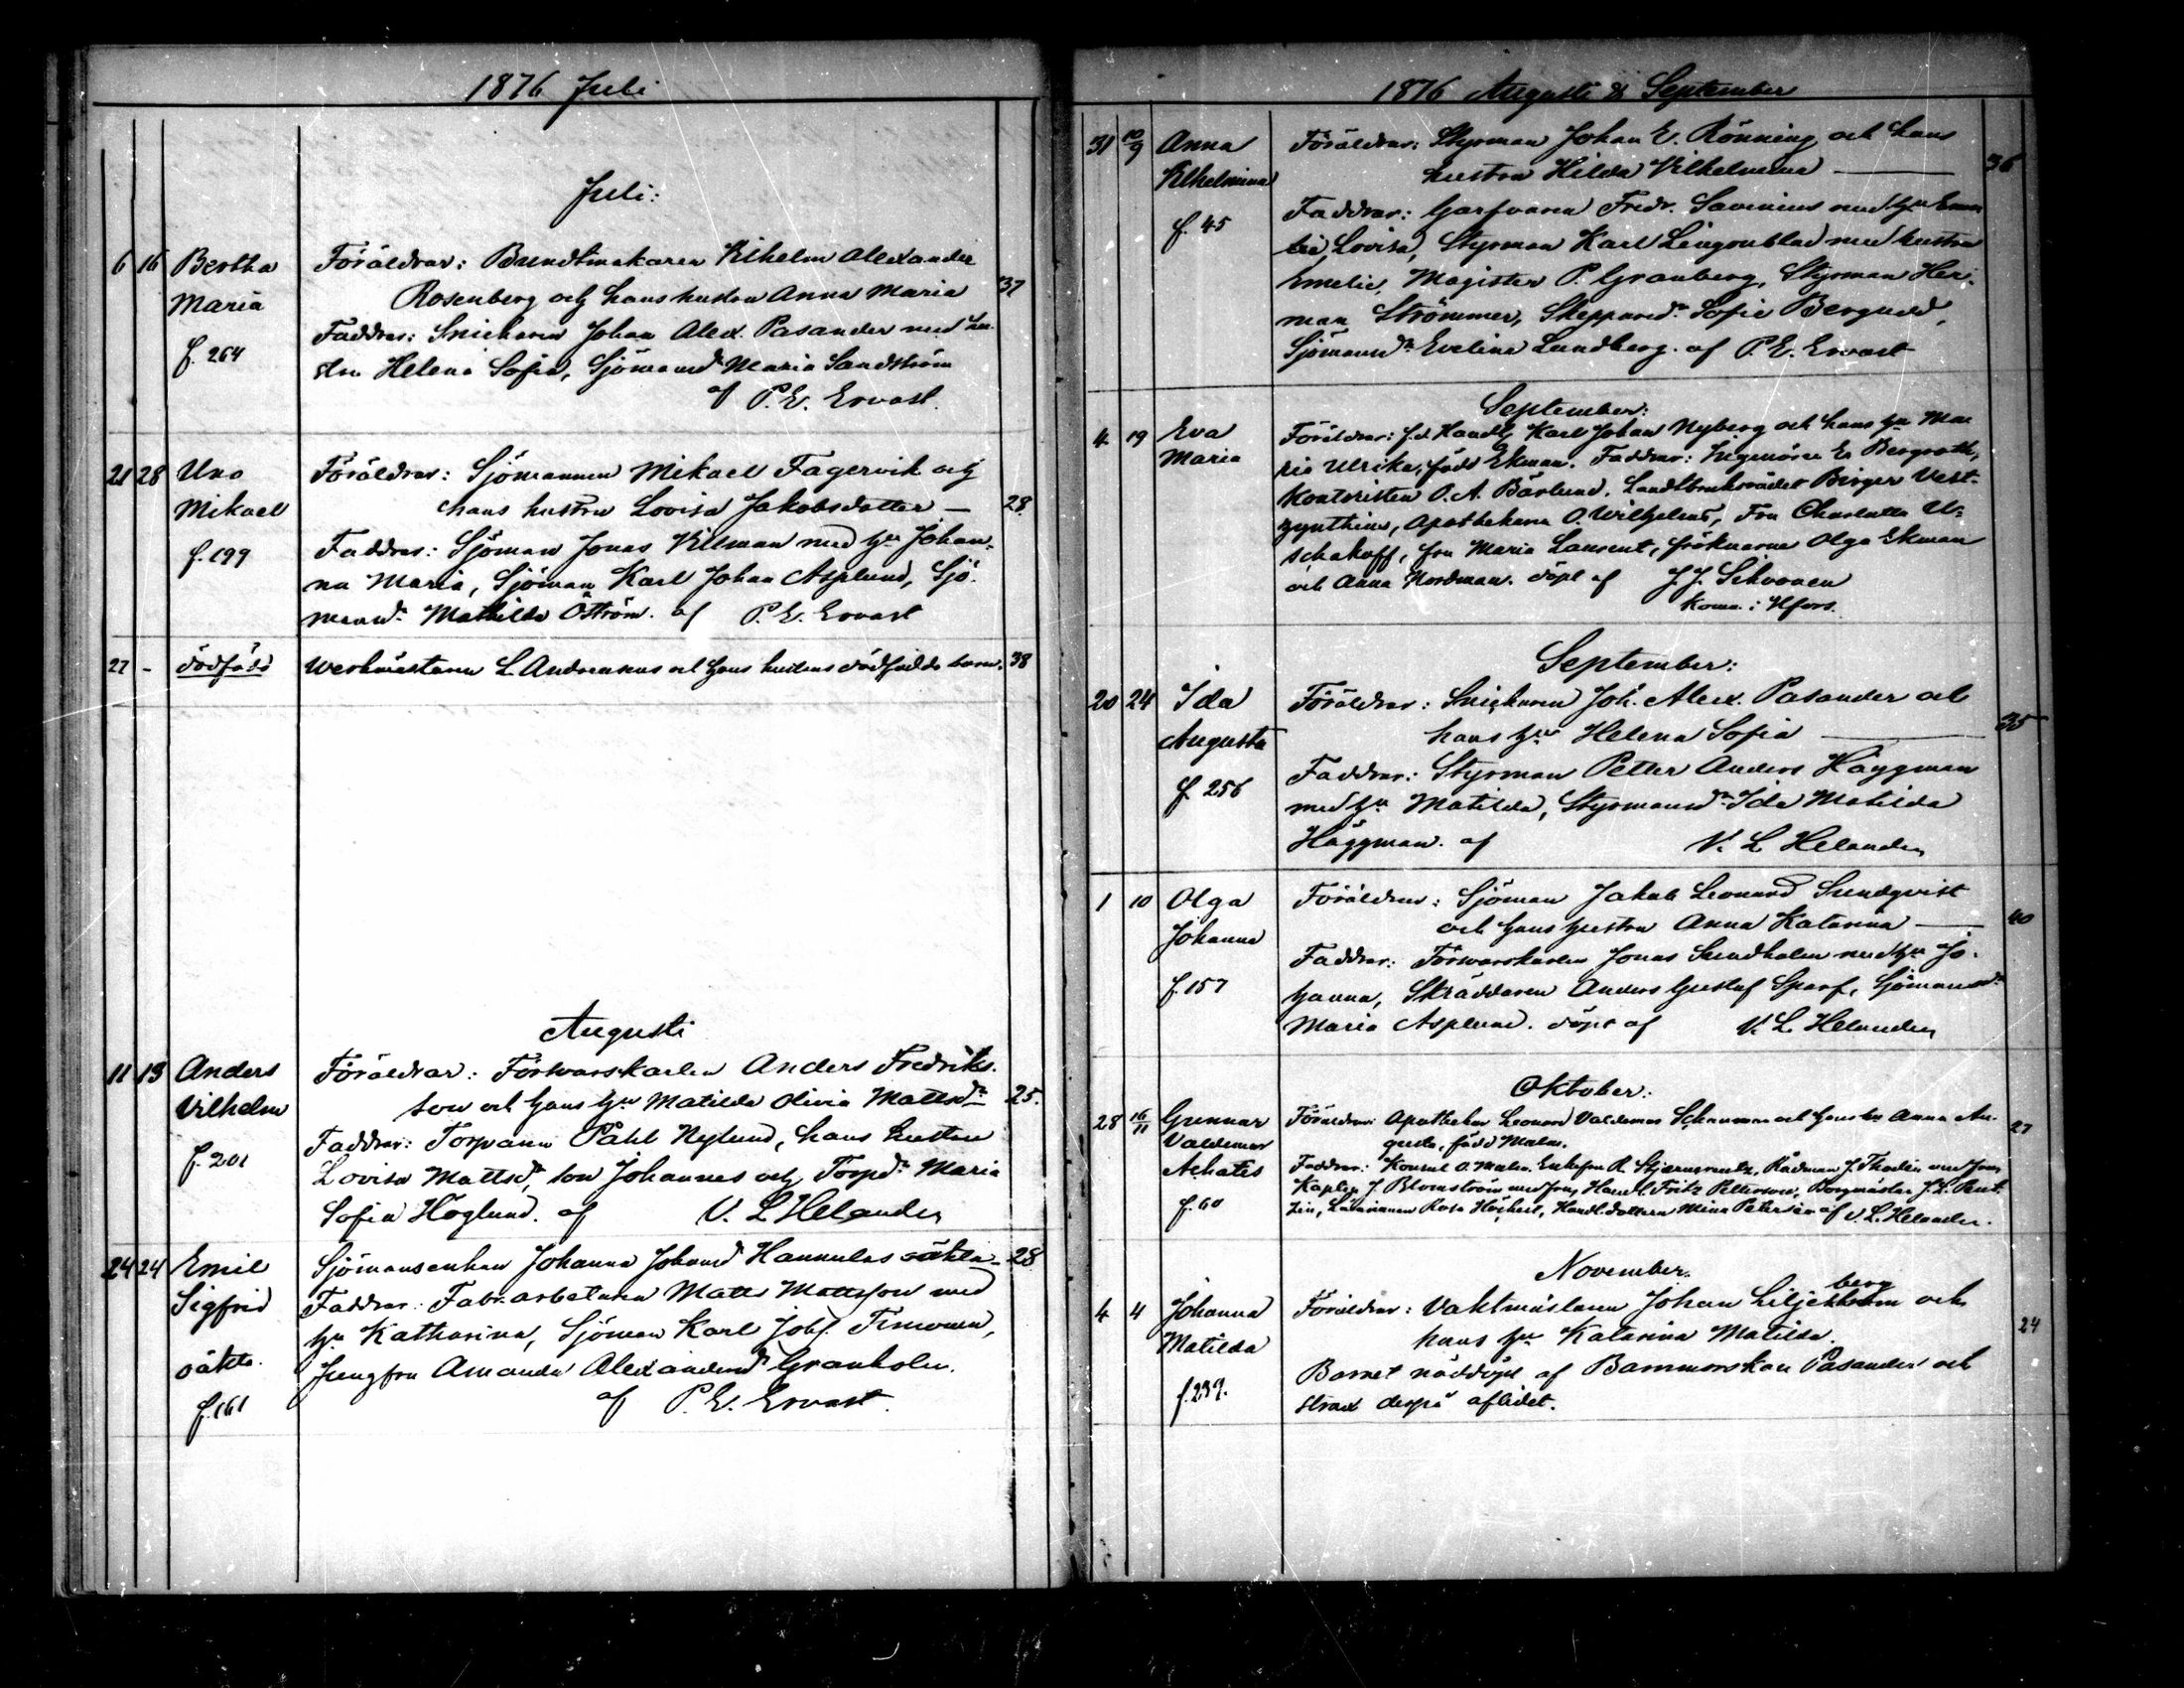 1876 Juli
Juli:
6 16 Bertha Föräldrar: Bundtmakaren Vilhelm Alexander
Maria Rosenberg och hans hustru Anna Maria 37
Faddrar: Snickaren Johan Alex. Pasander med hu-
f. 264 stru Helena Sofia, Sjömansd:r Maria Sandström
af P. E. Ervast.
21 28 Uno Föräldrar: Sjömannen Mikael Fagervik och
Mikael hans hustru Lovisa Jakobsdotter — 28.
f. 199 Faddrar: Sjöman Jonas Vilman med h:u Johan-
na Maria, Sjöman Karl Johan Asplund, Sjö-
mansd:r Mathilda Öström. af P. E. Ervast
27 - dödfödt Werkmästaren L. Andreasens och hans hustrus dödfödda barn. 38
Augusti
11 13 Anders Föräldrar: Förswarskarlen Anders Fredriks-
Vilhelm son och hans h:u Matilda Olivia Mattsd:r 25.
f. 201 Faddrar: Torparen Påhl Nylund, hans hustru
Lovisa Mattsd:r, son Johannes och Torpd:r Maria
Sofia Höglund. af V. L. Helander
24 24 Emil Sjömansenkan Johanna Johansd:r Hannulas oäkta 28
Sigfrid Faddrar: Fabr.arbetaren Matts Mattsson med
h:u Katharina, Sjöman Karl Joh. Timonen,
oäkta. Jungfru Amanda Alexandersd:r Granholm.
f. 161 af P. E. Ervast.
1876 Augusti & September
31 10/9 Anna Föräldrar: Styrman Johan E. Rönning och hans
Vilhelmina hustru Hilda Vilhelmina — 36
f. 45 Faddrar: Garfvaren Fredr. Savenius med h:u Eme-
lie Lovisa, Styrman Karl Lingonblad med hustru
Emelie, Magister P. Granberg, Styrman Her-
man Strömmer, Skeppared:r Sofie Bergudd,
Sjömansd:r Evelina Lundberg. af P. E. Ervast
September:
4 19 Eva Föräldrar: f.d. Handl. Karl Johan Nyberg och hans h:u Ma-
Maria ria Ulrika, född Ekman. Faddrar: Ingeniören E. Bergroth,
Kontoristen O. A. Bärlund, Landtbruksrådet Birger Vest-
zynthius, Apothekaren O. Wilhelms, Fru Charlotta U-
schakoff, fru Maria Laurent, fröknarna Olga Ekman
och Anna Nordman. döpt af J. J. Sihvonen
Komm. i Hfors.
September:
20 24 Ida Föräldrar: Snickaren Joh. Alex. Pasander och
Augusta hans h:u Helena Sofia — 35
f. 256 Faddrar: Styrman Petter Anders Häggman
med h:u Matilda, Styrmansd:r Ida Matilda
Häggman. af V. L. Helander
1 10 Olga Föräldrar: Sjöman Jakob Leonard Sundqvist
Johanna och hans hustru Anna Katarina — 40
Faddrar: Förswarskarlen Jonas Sundholm med h:u Jo-
f. 157 hanna, Skräddaren Anders Gustaf Sparf, Sjömansd:r
Maria Asplund. döpt af V. L. Helander
Oktober:
28 16/11 Gunnar Föräldrar: Apothekar Leonard Valdemar Schauman och hans h:u Anna Au-
Valdemar gusta, född Malm. 27
Achates Faddrar: Konsul O. Malm, Enkefru R. Stjerncreutz, Rådman J. Thodén med fru,
Kaplan J. Blomström med fru, Handl. Fritz Petterson, Borgmästar J. L. Pent-
f. 60 zin, Lärarinnan Rosa Höckert, Handl.dottern Mina Petersén af V. L. Helander.
November.
4 4 Johanna Föräldrar: Vaktmästaren Johan Liljeberg och
Matilda hans h:u Katarina Matilda. 24
Barnet nöddöpt af Barnmorskan Pasander och
f. 239. strax derpå aflidet.